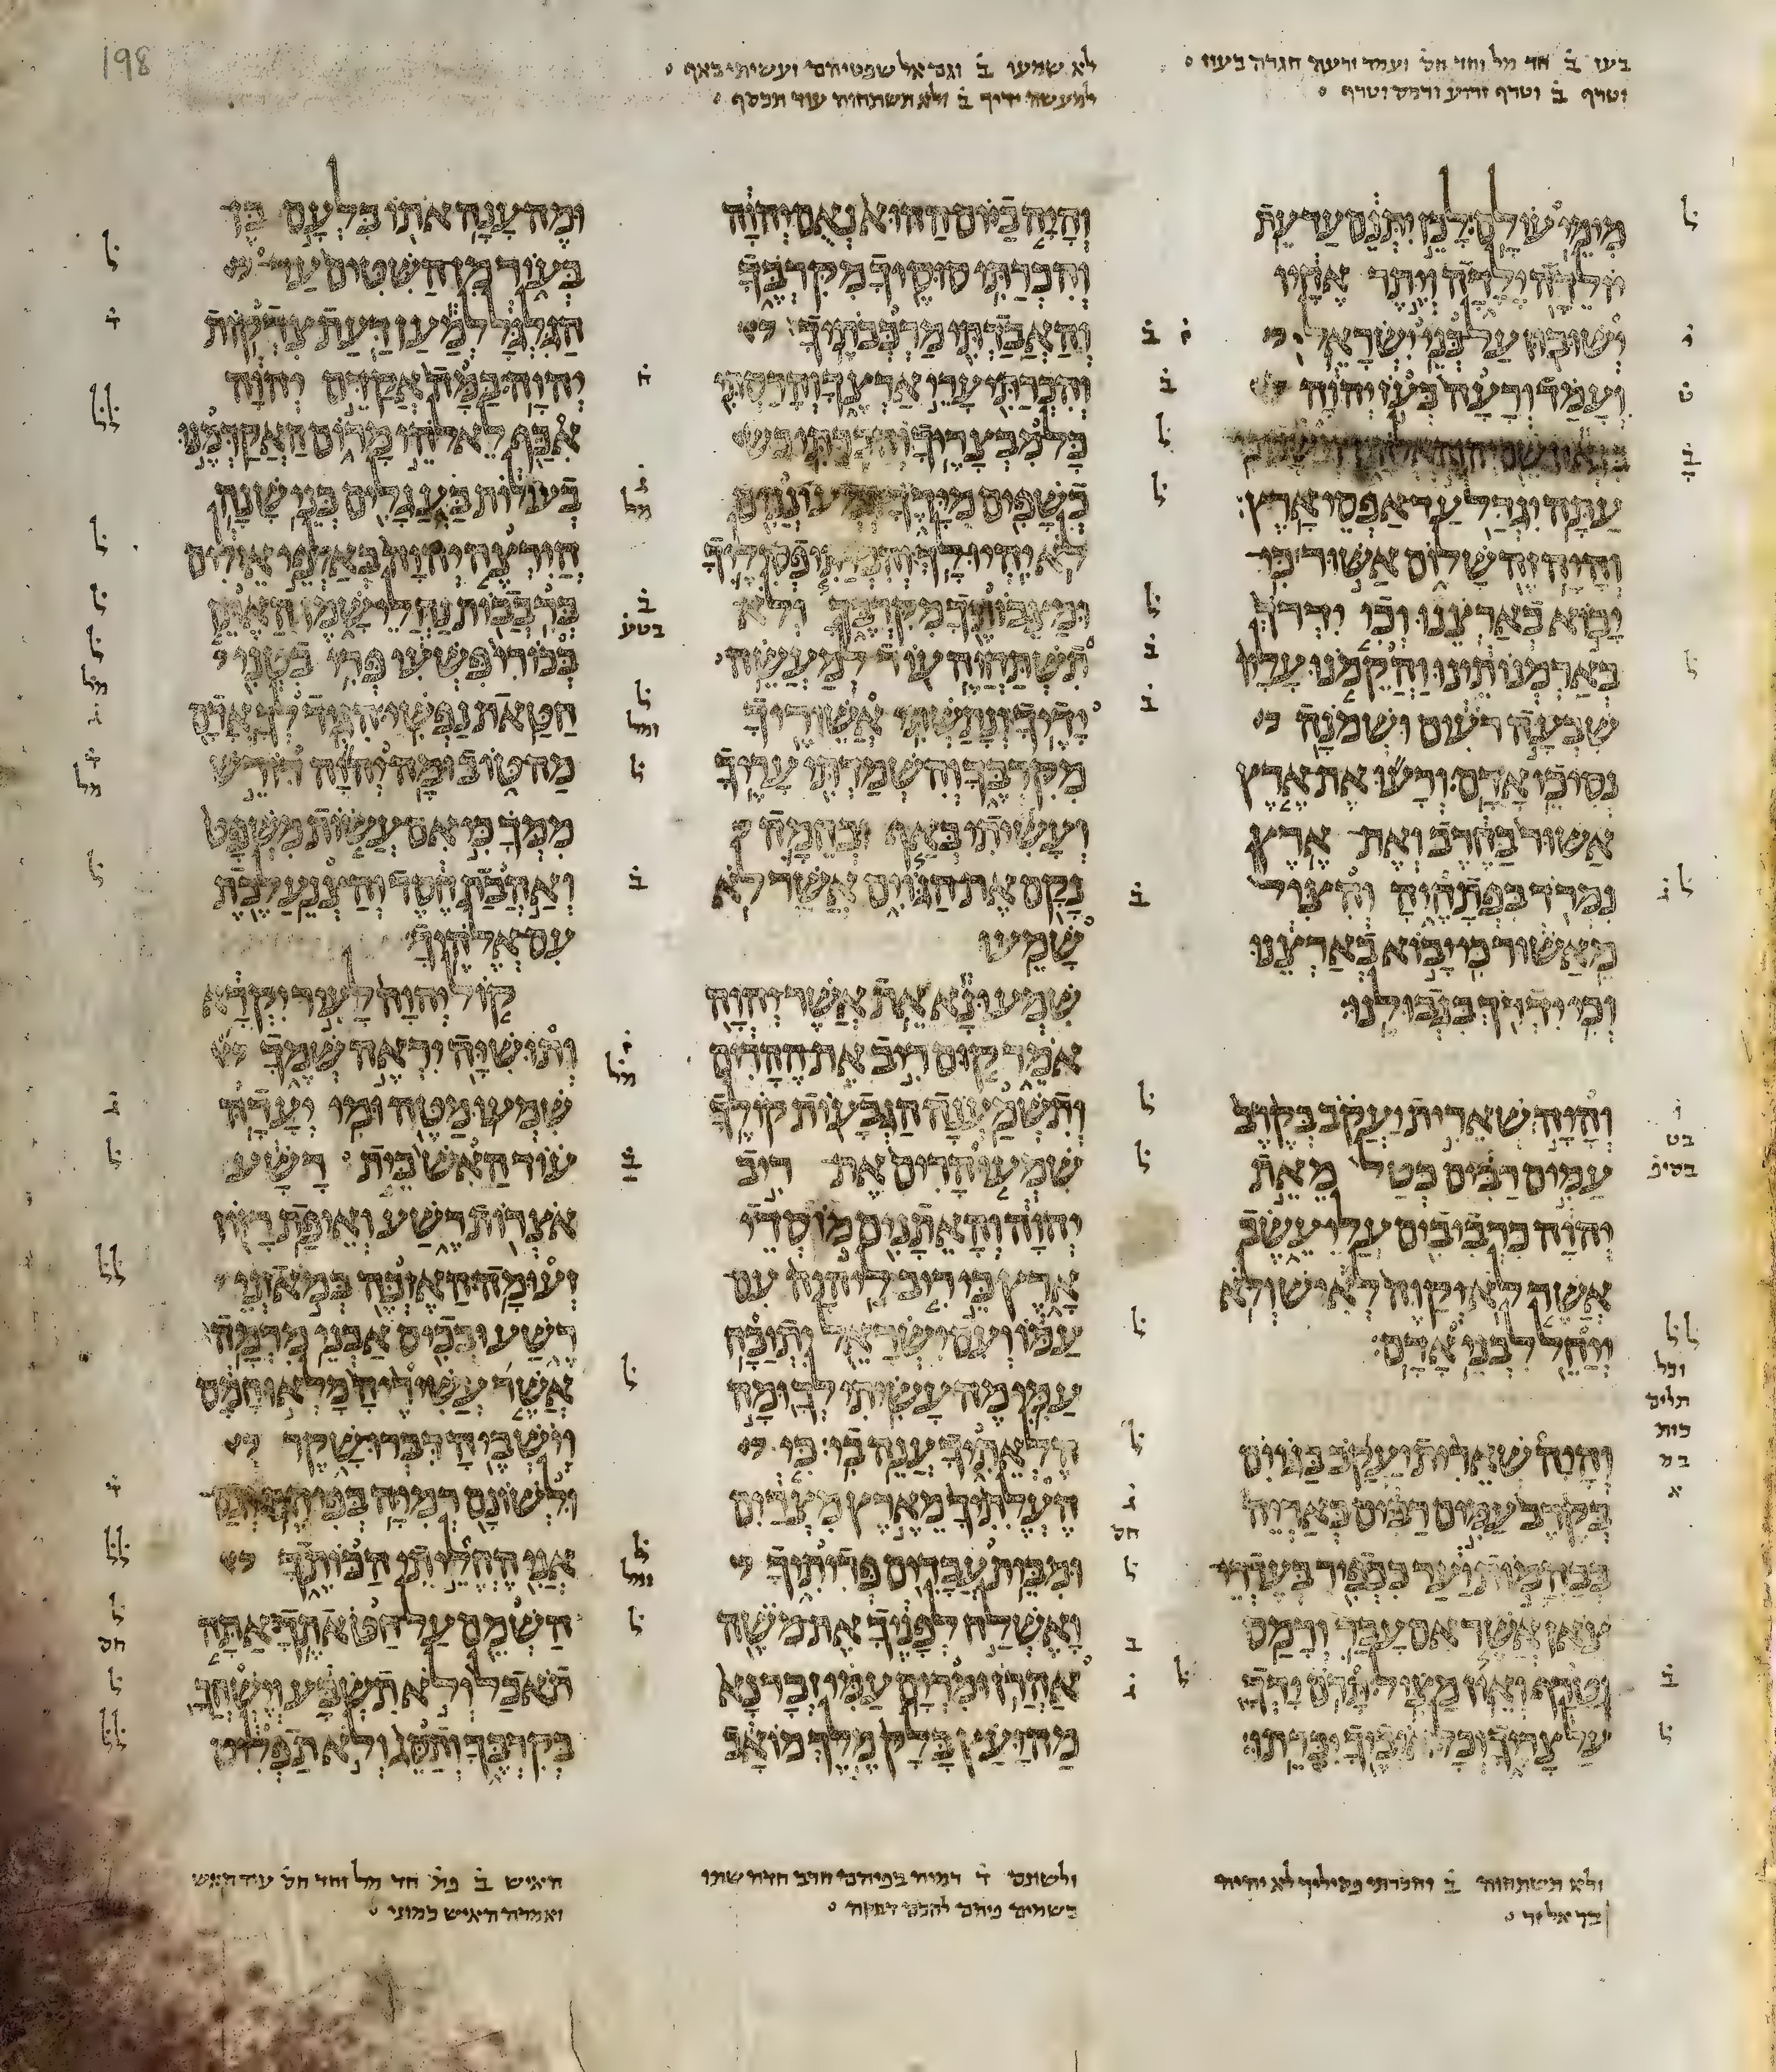 198
בעז ב חד מל וחד חס ועמד ורעה חגרה בעוז
וטרף ב וטרף זרוע ורמס וטרף
לא שמעו ב וגם אל שפטיהם ועשיתי באף
למעשה ידיך ב ולא תשתחוה עוד תכסף
מימי עולם לכן יתנם עד עת
יולדה ילדה ויתר אחיו
ישובון על בני ישראל
ועמד ורעה בעז יהוה
בגאון שם יהוה אלהיו וישבו כי
עתה יגדל עד אפסי ארץ
והיה זה שלום אשור כי
יבוא בארצנו וכי ידרך
בארמנותינו והקמנו עליו
שבעה רעים ושמנה
נסיכי אדם ורעו את ארץ
אשור בחרב ואת ארץ
נמרד בפתחיה והציל
מאשור כי יבוא בארצנו
וכי ידרך בגבולנו
והיה שארית יעקב בקרב
עמים רבים כטל מאת
יהוה כרביבים עלי עשב
אשר לא יקוה לאיש ולא
ייחל לבני אדם
והיה שארית יעקב בגוים
בקרב עמים רבים כאריה
בבהמות יער ככפיר בעדרי
צאן אשר אם עבר ורמס
וטרף ואין מציל תרם ידך
על צריך וכל איביך יכרתו
והיה ביום ההוא נאם יהוה
והכרתי סוסיך מקרבך
והאבדתי מרכבתיך
והכרתי ערי ארצך והרסתי
כל מבצריך והכרתי
כשפים מידך ומעוננים
לא יהיו לך והכרתי פסיליך
ומצבותיך מקרבך ולא
תשתחוה עוד למעשה
ידיך ונתשתי אשיריך
מקרבך והשמדתי עריך
ועשיתי באף ובחמה
נקם את הגוים אשר לא
שמעו
שמעו נא את אשר יהוה
אמר קום ריב את ההרים
ותשמענה הגבעות קולך
שמעו הרים את ריב
יהוה והאתנים מוסדי
ארץ כי ריב ליהוה עם
עמו ועם ישראל יתוכח
עמי מה עשיתי לך ומה
הלאתיך ענה בי כי
העלתיך מארץ מצרים
ומבית עבדים פדיתיך
ואשלח לפניך את משה
אהרן ומרים עמי זכר נא
מה יעץ בלק מלך מואב
ומה ענה אתו בלעם בן
בעור מן השטים עד
הגלגל למען דעת צדקות
יהוה במה אקדם יהוה
אכף לאלהי מרום האקדמנו
בעולות בעגלים בני שנה
הירצה יהוה באלפי אילים
ברבבות נחלי שמן האתן
בכורי פשעי פרי בטני
חטאת נפשי הגיד לך אדם
מה טוב ומה יהוה דורש
ממך כי אם עשות משפט
ואהבת חסד והצנע לכת
עם אלהיך
קול יהוה לעיר יקרא
ותושיה יראה שמך
שמעו מטה ומי יעדה
עוד האש בית רשע
אצרות רשע ואיפת רזון
זעומה האזכה במאזני
רשע ובכיס אבני מרמה
אשר עשיריה מלאו חמס
וישביה דברו שקר
ולשונם רמיה בפיהם
אני החליתי הכותך
השמם על חטאתך אתה
תאכל ולא תשבע וישחך
בקרבך ותסג ולא תפליט
ולא תשתחוה ב והכרתי פסיליך לא יהיה
בך אל זר
ולשונם ד רמיה בפיהם חרב חדה שתו
בשמים פיהם להבה דבקה
האיש ב כת חד מל וחד חס עוד האש
ואמרה האיש כמוני